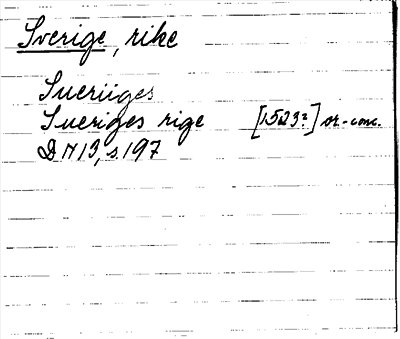 Sverige, rike
Sueriiges
Sueriges rige [1523?] or.-conc.
DN 13, s. 197